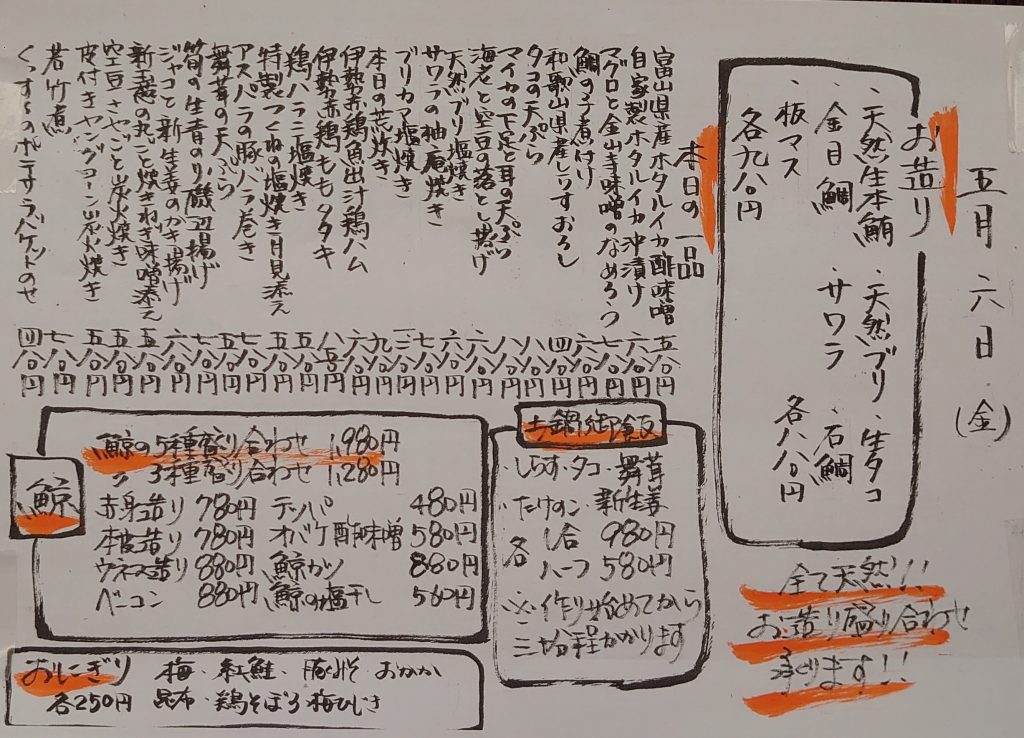 五月六日(金)
お造り
・天然生本鮪 ・天然ブリ ・生タコ
・金目鯛 ・サワラ ・石鯛
・板マス 各八八〇円
各九八〇円
全て天然!!
お造り盛り合わせ
承ります!!
本日の一品
富山県産ホタルイカ酢味噌
自家製ホタルイカ沖漬け
マグロと金山寺味噌のなめろう
鯛の子煮付け
和歌山県産しらすおろし
タコの天ぷら
マイカの下足と耳の天ぷら
海老と空豆の落とし揚げ
天然ブリ塩焼き
サワラの柚庵焼き
ブリカマ塩焼き
本日の荒炊き
伊勢赤鶏魚出汁鶏ハム
伊勢赤鶏ももタタキ
鶏ハラミ塩焼き
特製つくね塩焼き月見添え
アスパラの豚バラ巻き
舞茸の天ぷら
筍の生青のり磯辺揚げ
ジャコと新生姜のかき揚げ
新玉葱の丸ごと焼きねぎ味噌添え
空豆さやごと炭火焼き
皮付きヤングコーン炭火焼き
若竹煮
くっすーのポテサラバケットのせ
鯨
鯨の5種盛り合わせ 1,980円
〃 3種盛り合わせ 1,280円
赤身造り 780円 テッパ 480円
本皮造り 780円 オバケ酢味噌 580円
ウネス造り 880円 鯨カツ 880円
ベーコン 880円 鯨の塩干し 560円
土鍋御飯
・しらす・タコ・舞茸
・たけのこ・新生姜
各 1合 980円
ハーフ 580円
※作り始めてから
三十分程かかります
おにぎり 梅・紅鮭・豚みそ・おかか
各250円 昆布・鶏そぼろ・梅ひじき